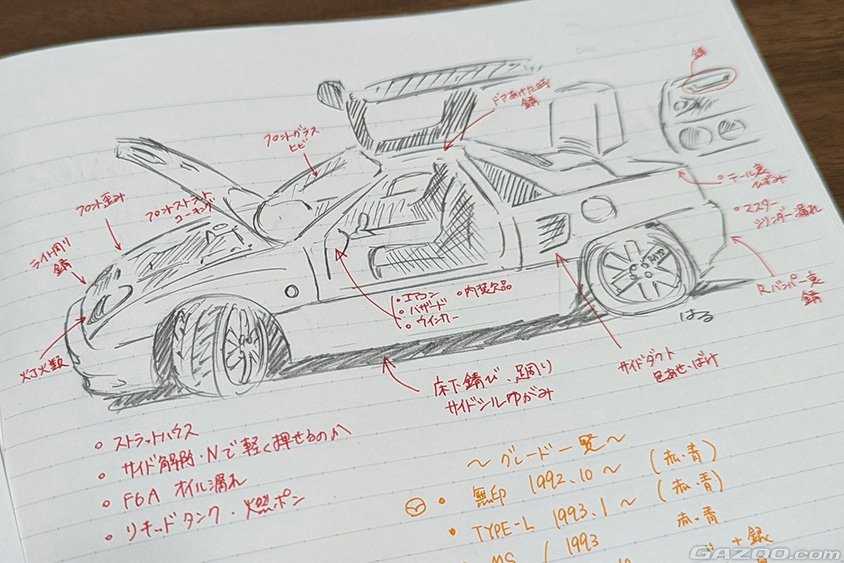 錆
ドアあけた時
錆
フロントガラス
ヒビ
フロント歪み
フロントストラット
コーキング
ライト周り
錆
灯火類
・エアコン ・内装欠品
・ハザード
・ウインカー
・テール裏
・マスター
シリンダー漏れ
Rバンパー裏
錆
はる
サイドダクト
色あせ・ぼけ
床下錆び・周り
サイドシルゆがみ
・ストラットハウス
・サイド解除・Nで軽く押せるのか
・F6A オイル漏れ
・リキッドタンク・燃ポン
〜グレード一覧〜
・無印 1992.10〜 (赤・青)
・TYPE-L 1993.1〜 (赤・青)
1993 赤・青
+銀
GAZOO.com